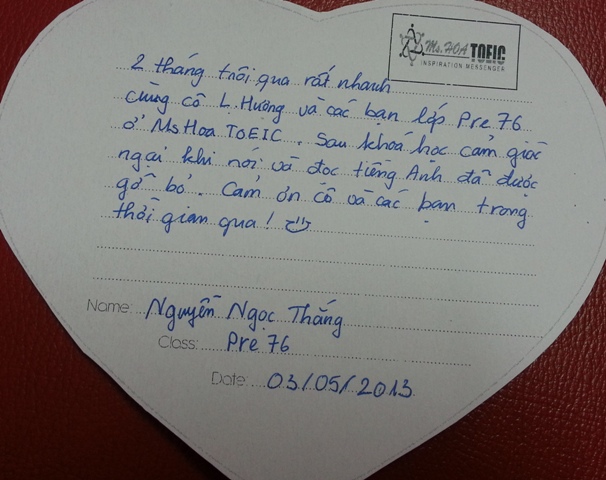 Ms. HOA TOEIC
INSPIRATION MESSENGER
2 tháng trôi qua rất nhanh
cùng cô L. Hương và các bạn lớp Pre 76
ở Ms Hoa TOEIC. Sau khoá học cảm giác
ngại khi nói và đọc tiếng Anh đã được
gỡ bỏ. Cảm ơn cô và các bạn trong
thời gian qua!
Name: Nguyễn Ngọc Thắng
Class: Pre 76
Date: 03/05/2013